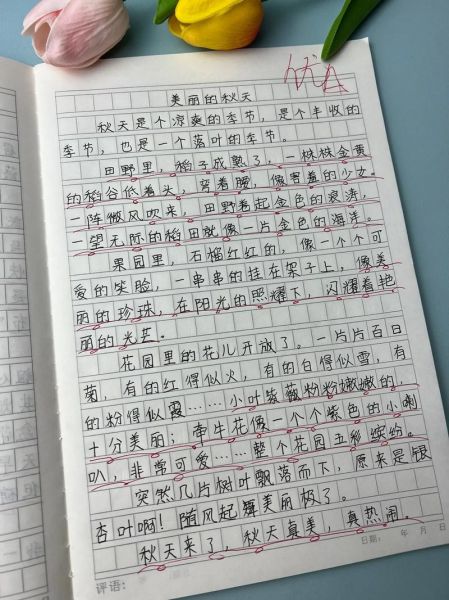 优A
美丽的秋天
秋天是个凉爽的季节，是个丰收的
季节，也是一个落叶的季节。
田野里，稻子成熟了，一株株金黄
的稻谷低着头，弯着腰，像害羞的少女。
一阵微风吹来，田野卷起金色的浪涛，
一望无际的稻田就像一片金色的海洋。
果园里，石榴红红的，像一个个可
爱的笑脸，一串串的挂在架子上，像美
丽的珍珠，在阳光的照耀下，闪耀着艳
丽的光芒。
花园里的花儿开放了。一片片百日
菊，有的红得似火，有的白得似雪，有
的粉得似霞……小叶蔷薇粉粉嫩嫩的
十分美丽；牵牛花像一个个紫色的小喇
叭，非常可爱……整个花园五彩缤纷。
突然几片树叶飘落而下，原来是银
杏叶啊！随风起舞美丽极了。
秋天来了，秋天真美，真热闹。
评语：
日期： 年 月 日